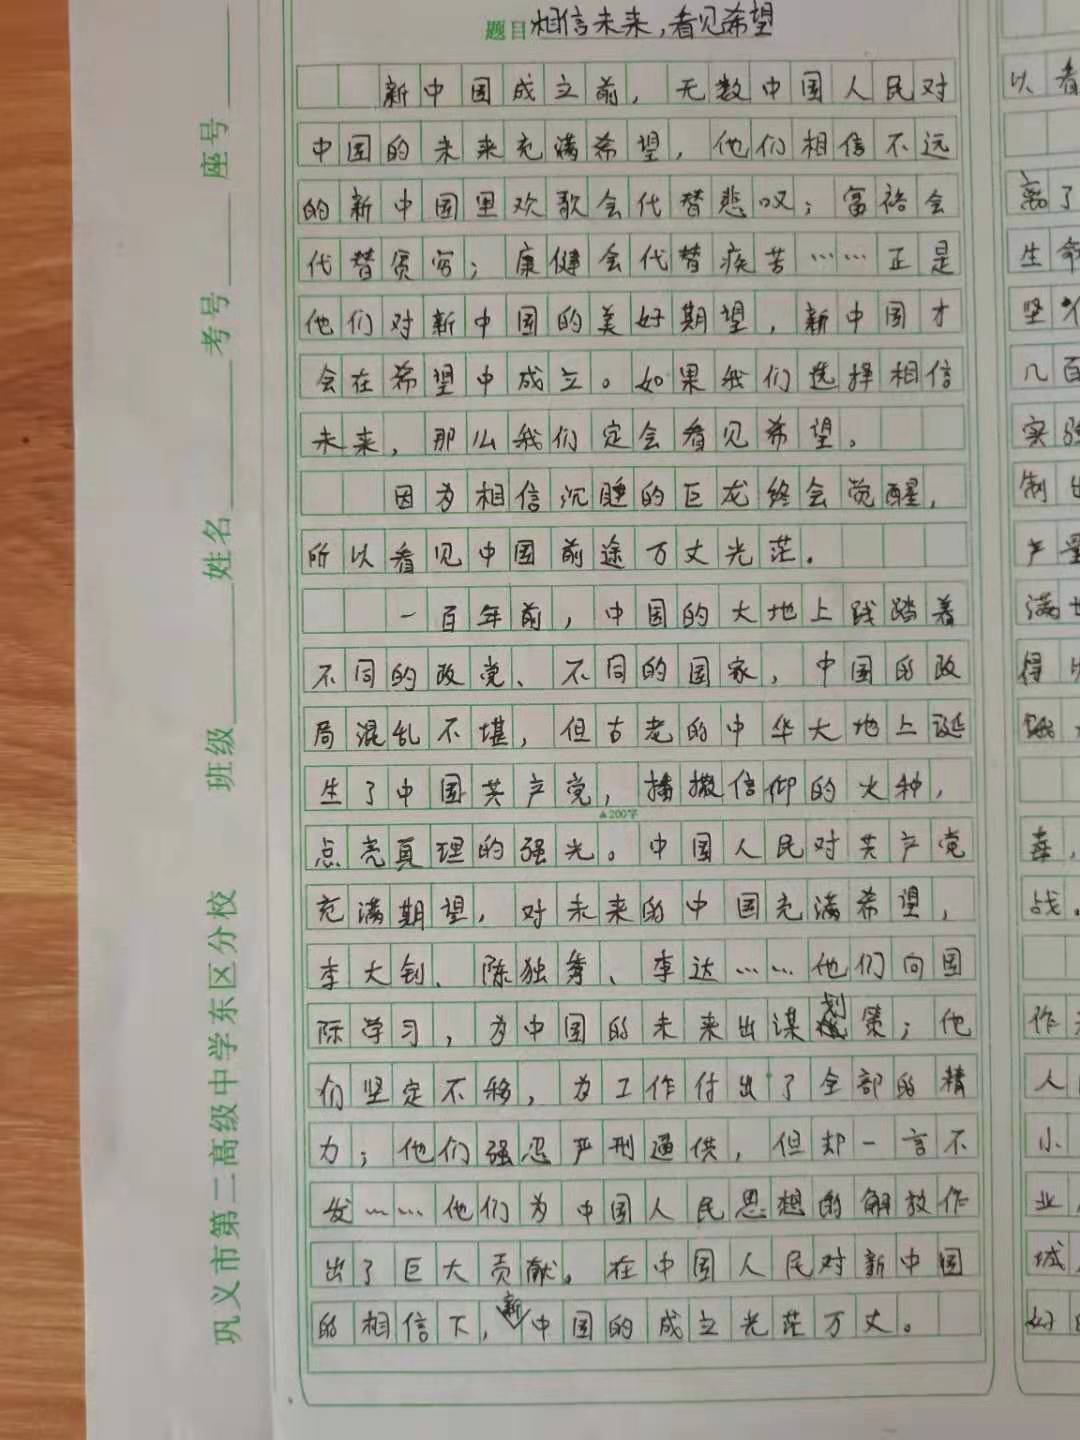 题目 相信未来，看见希望
新中国成立前，无数中国人民对
中国的未来充满希望，他们相信不远
的新中国里欢歌会代替悲叹；富裕会
代替贫穷；康健会代替疾苦……正是
他们对新中国的美好期望，新中国才
会在希望中成立。如果我们选择相信
未来，那么我们定会看见希望。
因为相信沉睡的巨龙终会觉醒，
所以看见中国前途万丈光茫。
一百年前，中国的大地上践踏着
不同的政党、不同的国家，中国的政
局混乱不堪，但古老的中华大地上诞
生了中国共产党，播撒信仰的火种，
▲200字
点亮真理的强光。中国人民对共产党
充满期望，对未来的中国充满希望，
李大钊、陈独秀、李达……他们向国
际学习，为中国的未来出谋划策；他
们坚定不移，为工作付出了全部的精
力；他们强忍严刑逼供，但却一言不
发……他们为中国人民思想的解放作
出了巨大贡献。在中国人民对新中国
的相信下，新中国的成立光茫万丈。
巩义市第二高级中学东区分校 班级 姓名 考号 座号
以看
离了
生命
坚
几百
实验
制出
产量
满
得
垂，
战。
作
人
小
业
城
好